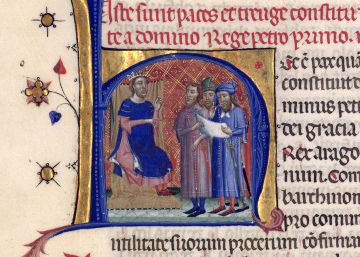 Iste sunt paces et treuge constitu
te a domino Rege petro primo.
ec est pax qua
constitute
minus pet
dei gracia
Rex arago
num. Com
barchinon
pro comu
utilitate suorum procerum confirma